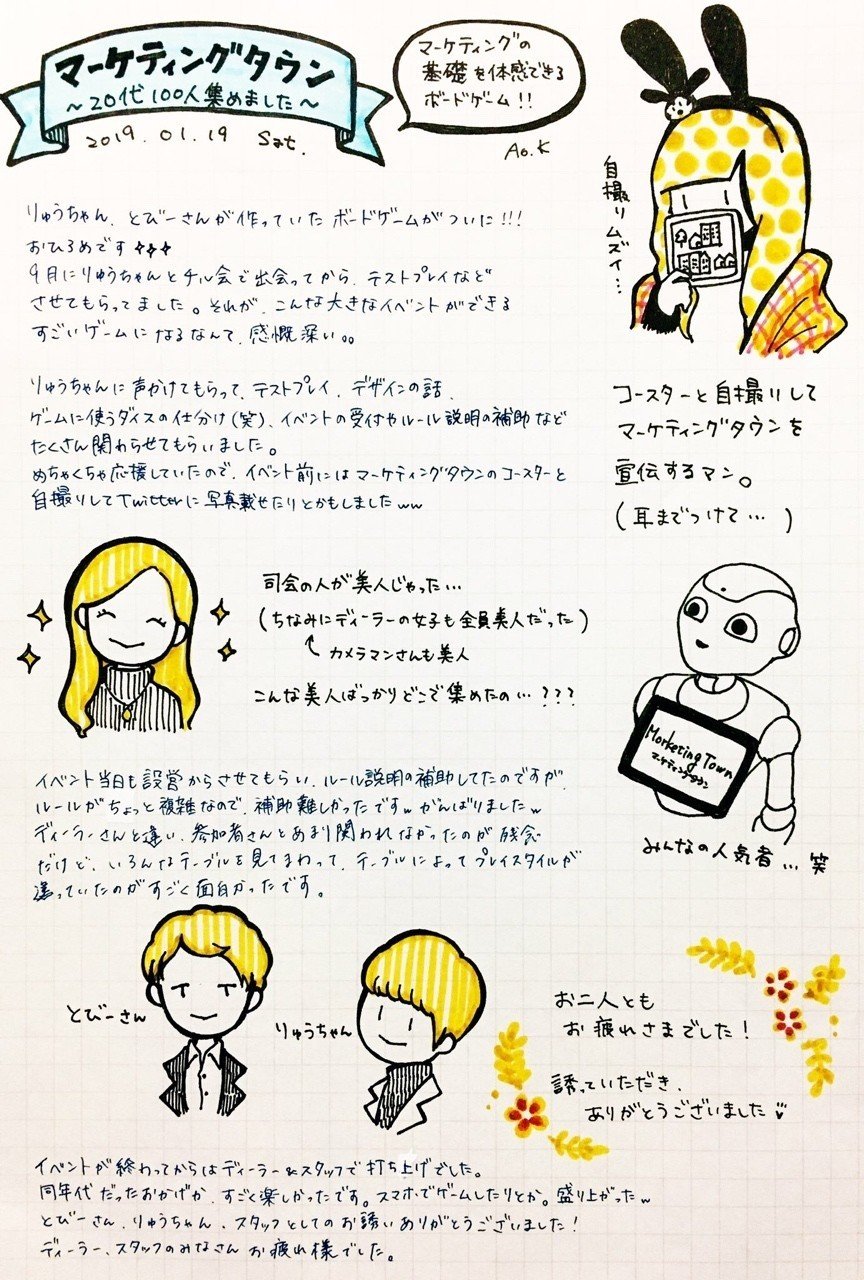 マーケティングタウン
～20代100人集めました～
2019.01.19 Sat.
マーケティングの
基礎を体感できる
ボードゲーム!!
Ao.K
自撮りムズイ…
りゅうちゃん、とびーさんが作っていた ボードゲームがついに!!!
おひろめです
9月にりゅうちゃんとチル会で出会ってから、テストプレイなど
させてもらってました。それが、こんな大きなイベントができる
すごいゲームになるなんて、感慨深い。。
コースターと自撮りして
マーケティングタウンを
宣伝するマン。
(耳までつけて…)
りゅうちゃんに声かけてもらって、テストプレイ、デザインの話、
ゲームに使うダイスの仕分け(笑)、イベントの受付やルール説明の補助など
たくさん関わらせてもらいました。
めちゃくちゃ応援していたので、イベント前にはマーケティングタウンのコースターと
自撮りしてTwitterに写真載せたりとかもしましたww
司会の人が美人じゃった…
(ちなみにディーラーの女子も全員美人だった)
カメラマンさんも美人
こんな美人ばっかりどこで集めたの…???
Marketing Town
マーケティングタウン
みんなの人気者…笑
イベント当日も設営からさせてもらい、ルール説明の補助してたのですが、
ルールがちょっと複雑なので、補助難しかったですw がんばりましたw
ディーラーさんと違い、参加者さんとあまり関われなかったのが残念
だけど、いろんなテーブルを見てまわって、テーブルによってプレイスタイルが
違っていたのがすごく面白かったです。
とびーさん
りゅうちゃん
お二人とも
お疲れさまでした!
誘っていただき、
ありがとうございました
イベントが終わってからはディーラー&スタッフで打ち上げでした。
同年代だったおかげか、すごく楽しかったです。スマホでゲームしたりとか。盛り上がったw
とびーさん、りゅうちゃん、スタッフとしてのお誘いありがとうございました!
ディーラー、スタッフのみなさん お疲れ様でした。